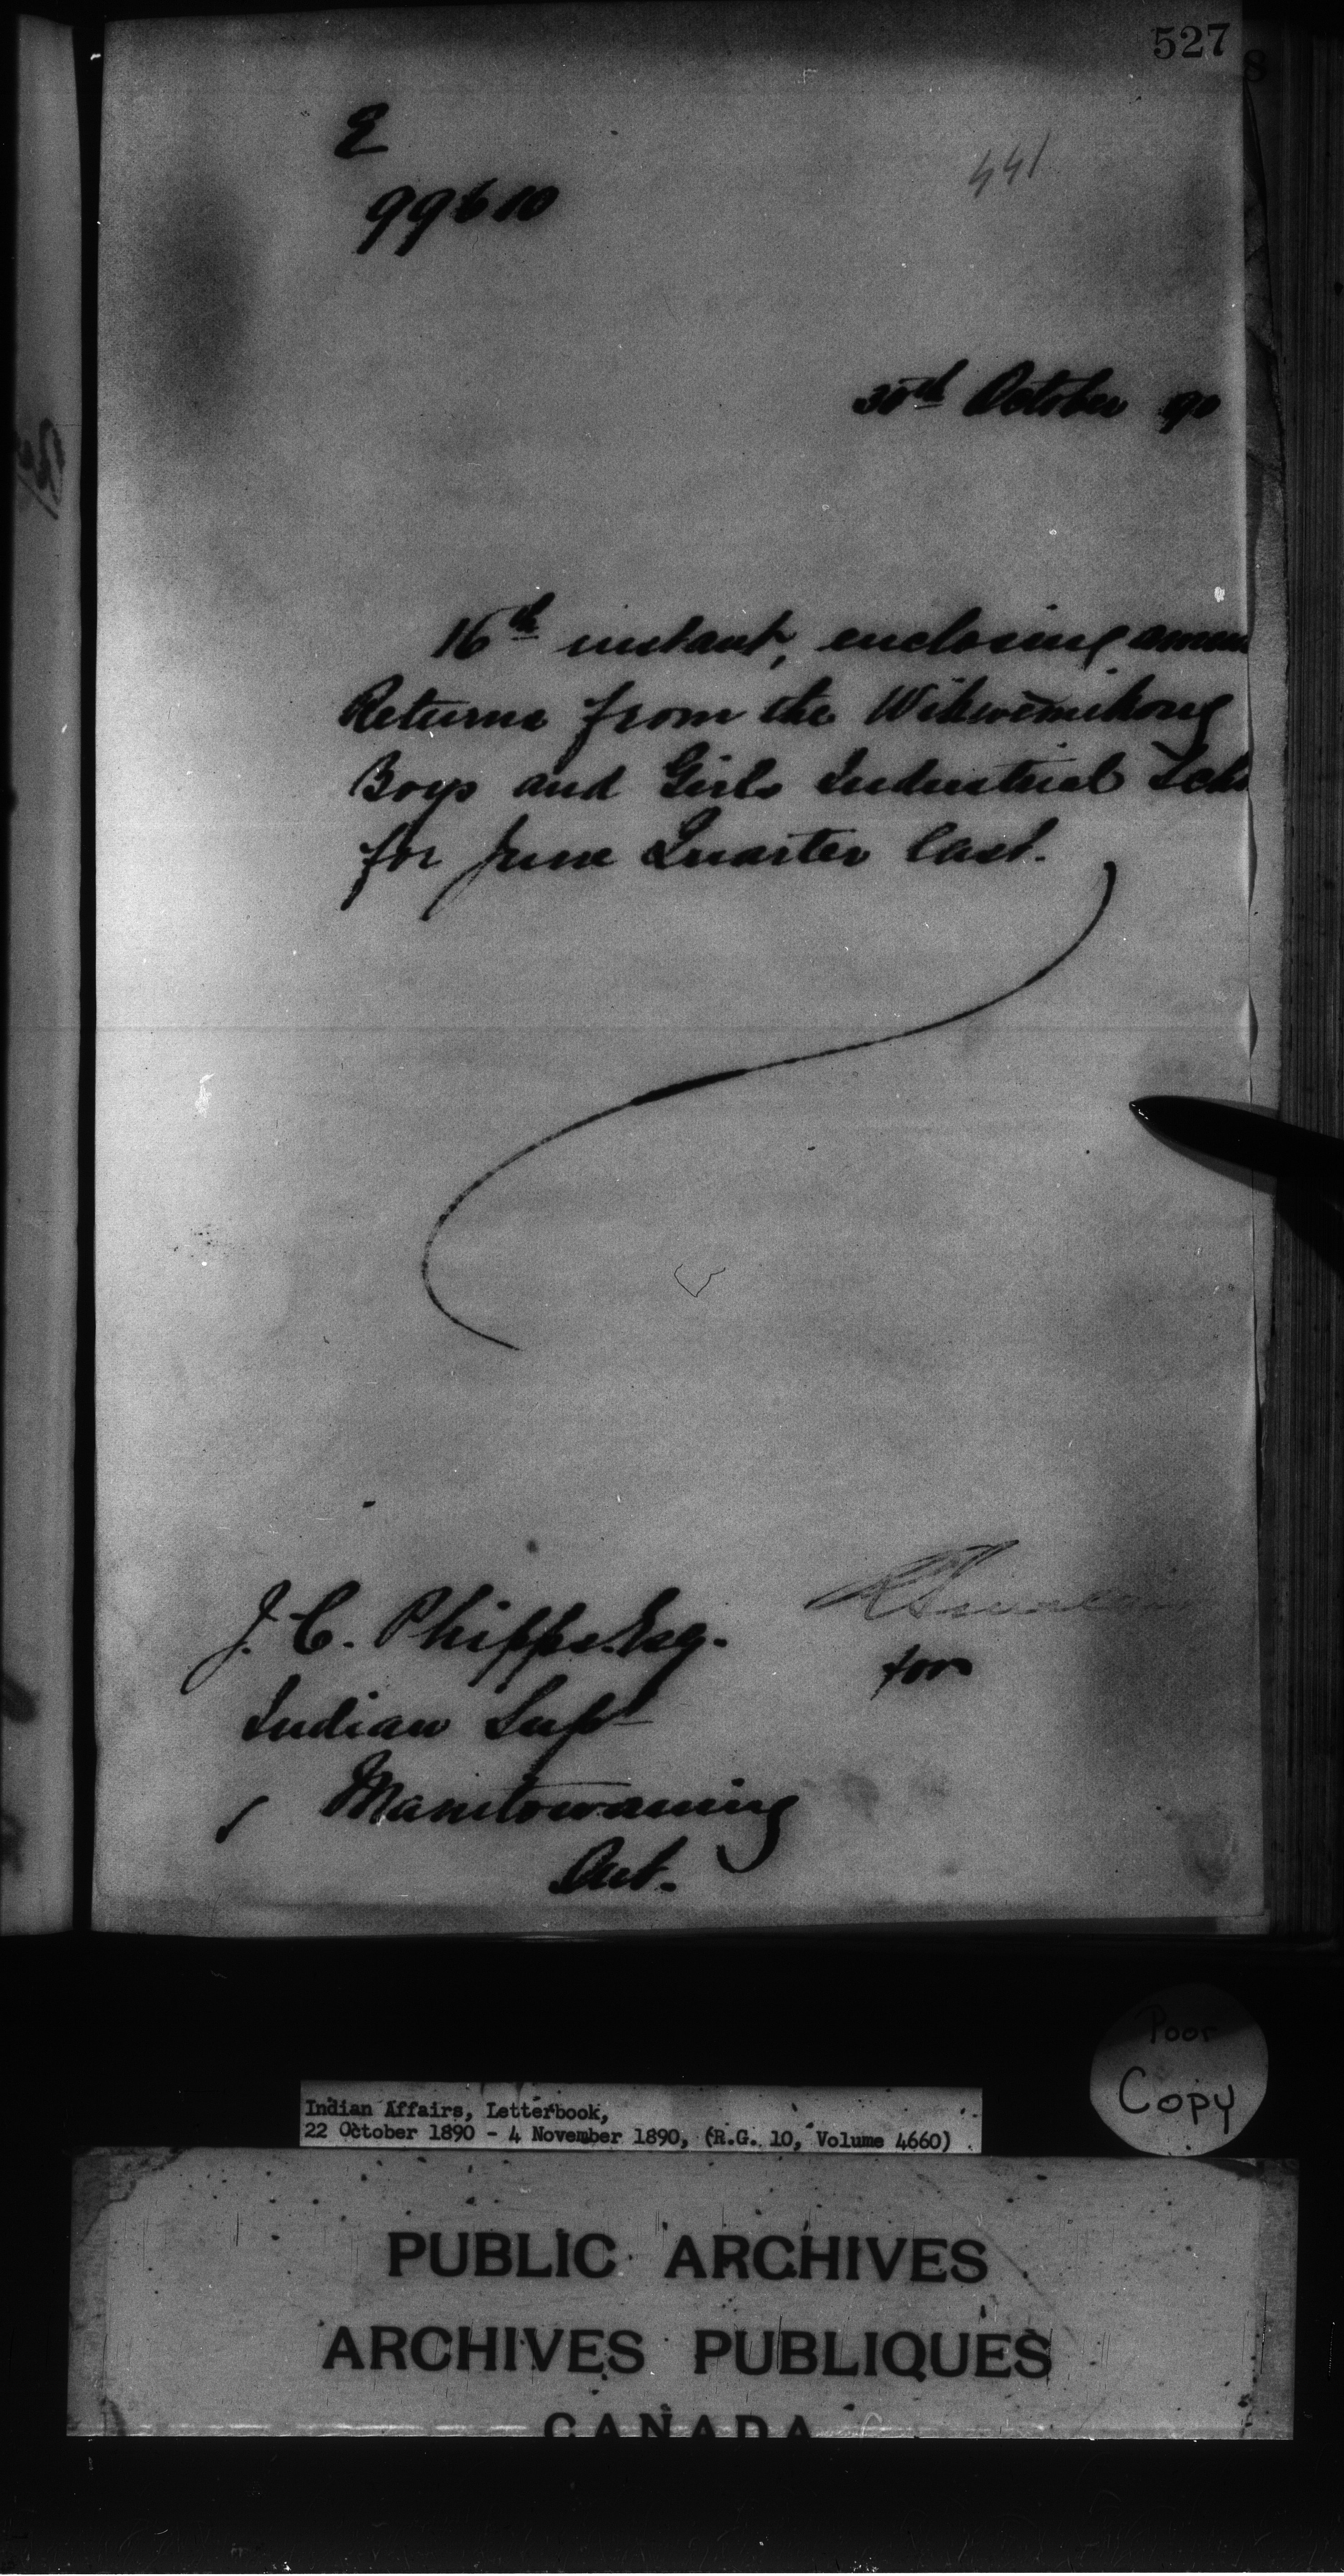 527
E
441
99610
30th October 90
16th instant, enclosing
Returns from the Wikwemikong
Boys and Girls Industrial
for June Quarter last.
J. C. Phipps Esq.
for
Indian Supt
Manitowaning
Ont.
Poor
Copy
Indian Affairs, Letterbook,
22 October 1890 - 4 November 1890, (R.G. 10, Volume 4660)
PUBLIC ARCHIVES
ARCHIVES PUBLIQUES
CANADA